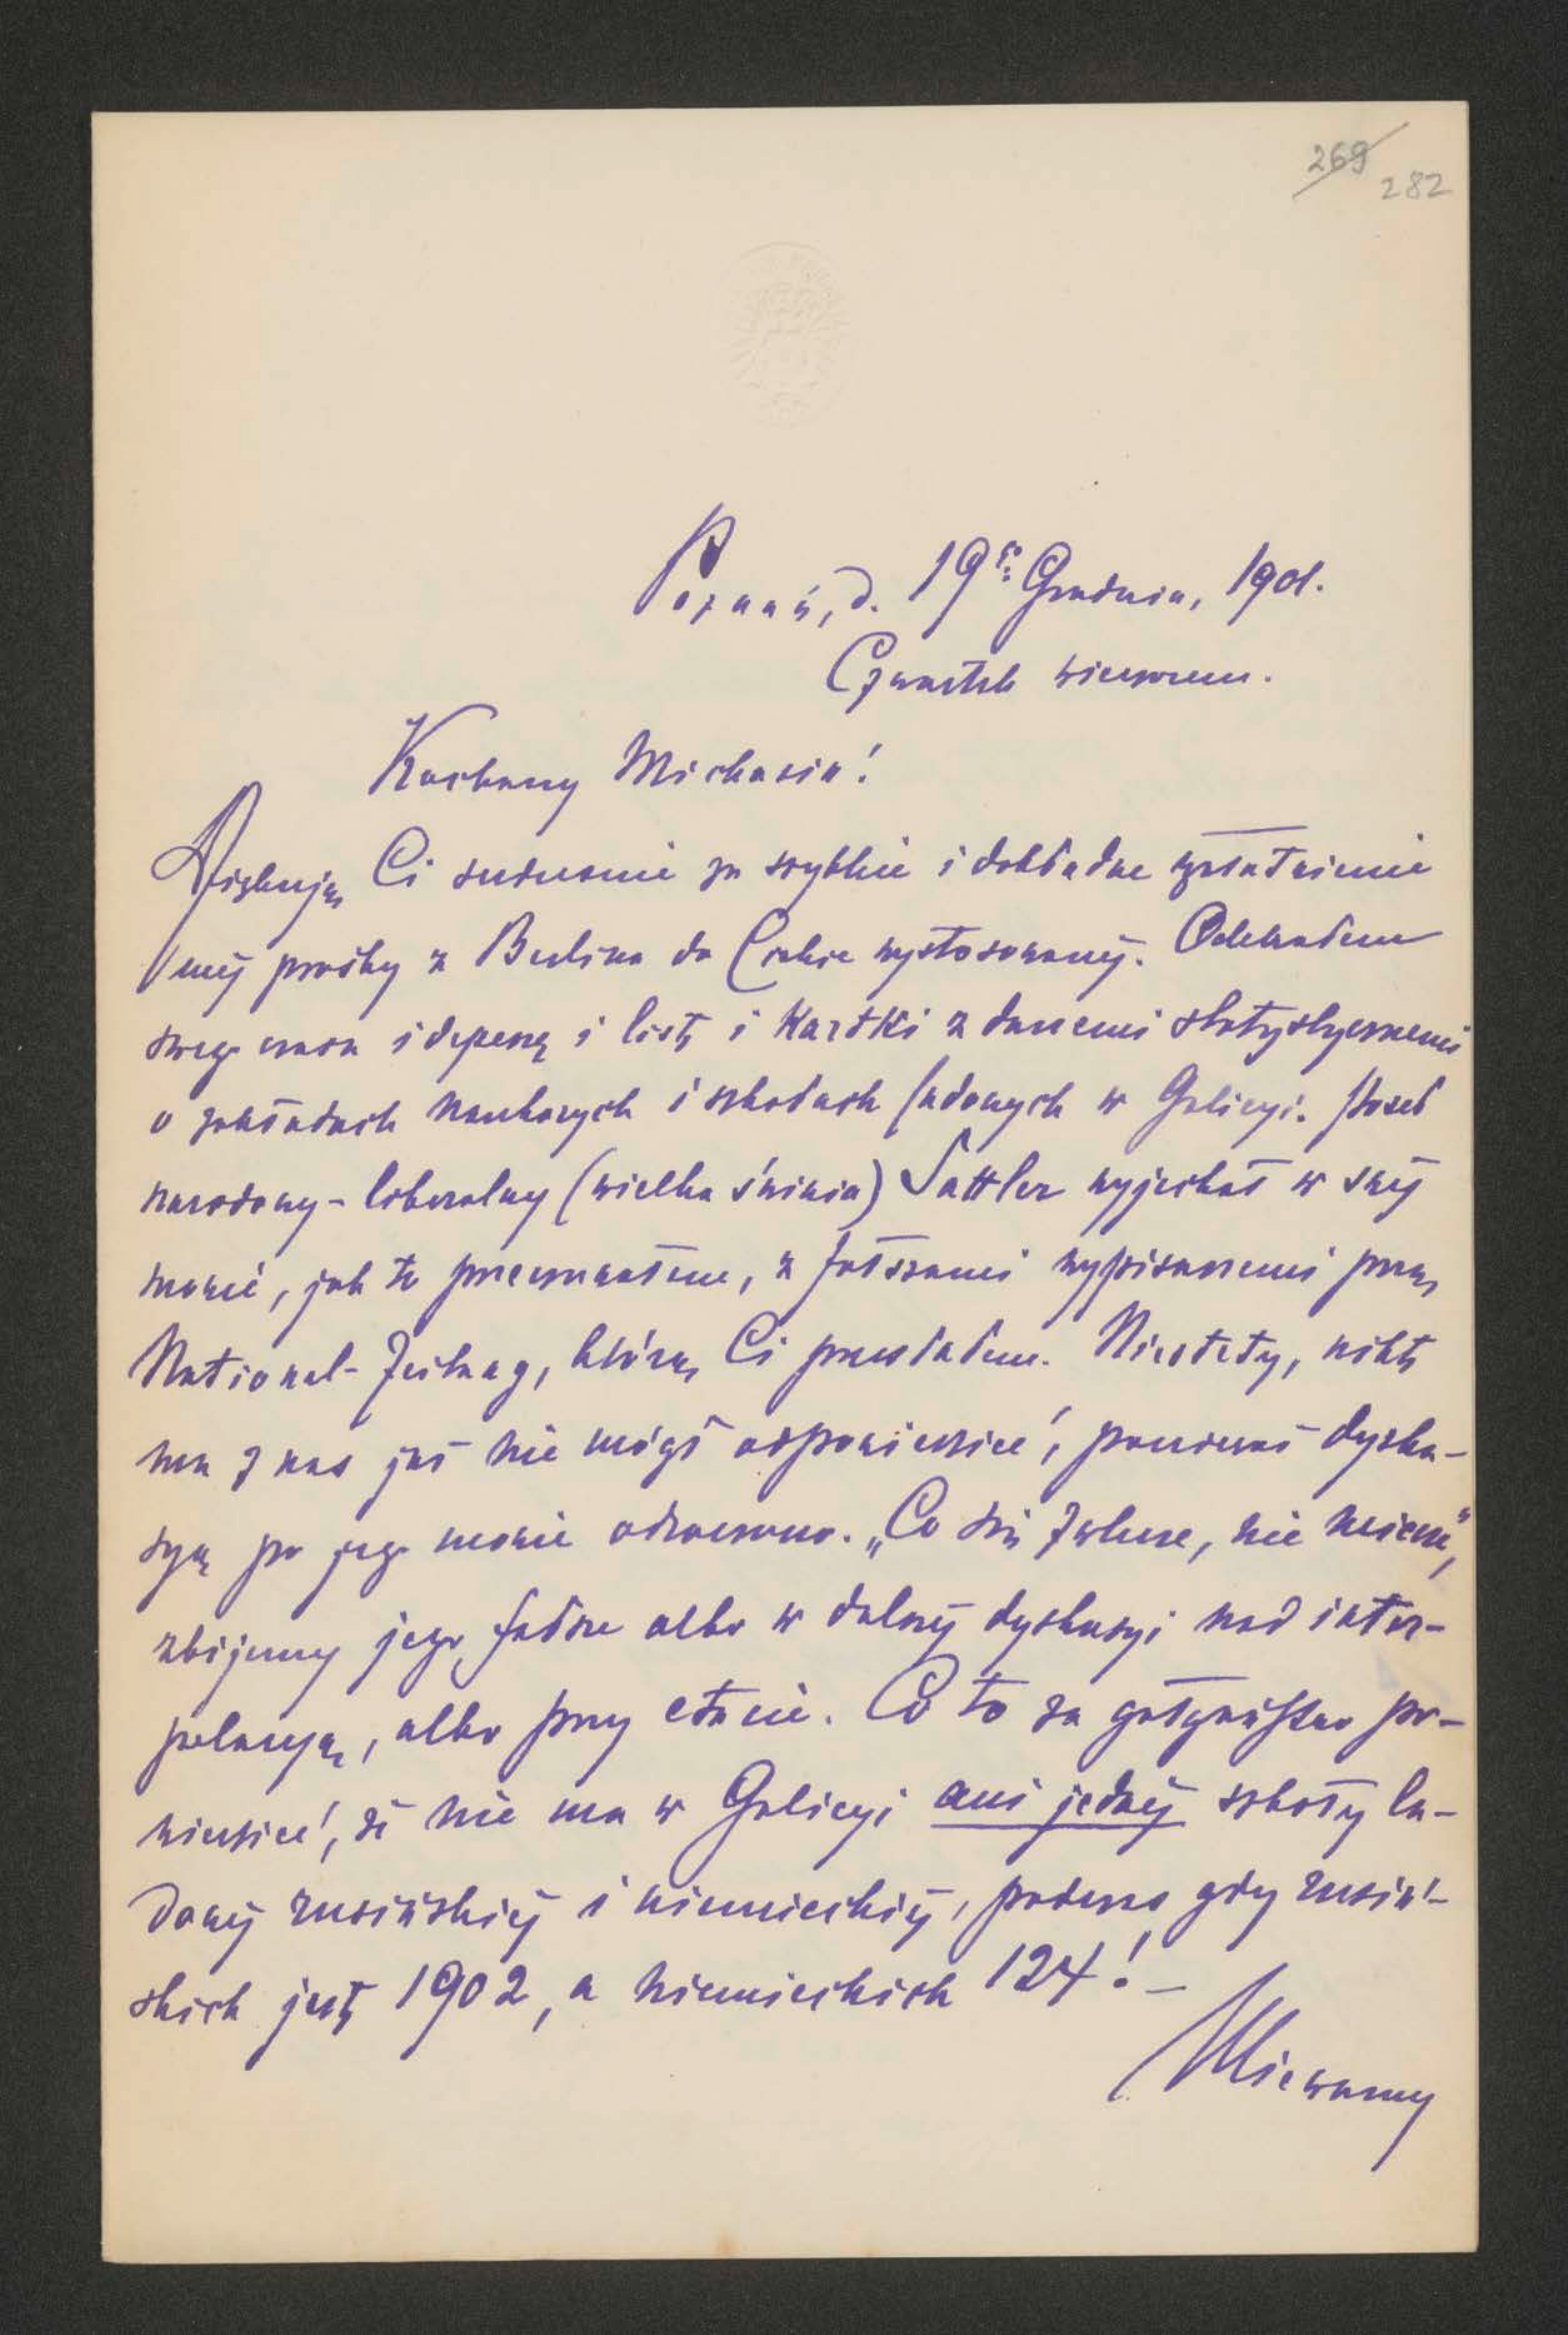 269
282
Poznań, d. 19go Grudnia, 1901.
Czwartek wieczorem.
Kochany Michasiu!
Dziękuję Ci serdecznie za szybkie i dokładne załatwienie
mej prośby z Berlina do Ciebie wystosowanej. Odebrałem
swego czasu i depeszę i list i kartki z danemi statystycznemi
o zakładach naukowych i szkołach ludowych w Galicyi. Poseł
narodowy-liberalny (wielka świnia) Sattler wyjechał w swej
mowie, jak to przeczuwałem, z fałszami wypisanemi przez
National-Zeitung, którą Ci przesłałem. Niestety, nikt
na z nas już nie mógł odpowiedzieć, ponieważ dysku-
syą po jego mowie odroczono. „Co się zwlecze, nie uciecze",
zbijemy jego fałsze albo w dalszej dyskusyi nad inter-
pelacyą, albo przy etacie. Co to za gałgaństwo po-
wiedzieć, że nie ma w Galicyi ani jednej szkoły lu-
dowej rusińskiej i niemieckiej, podczas gdy rusiń-
skich jest 1902, a niemieckich 124! –
Miewamy